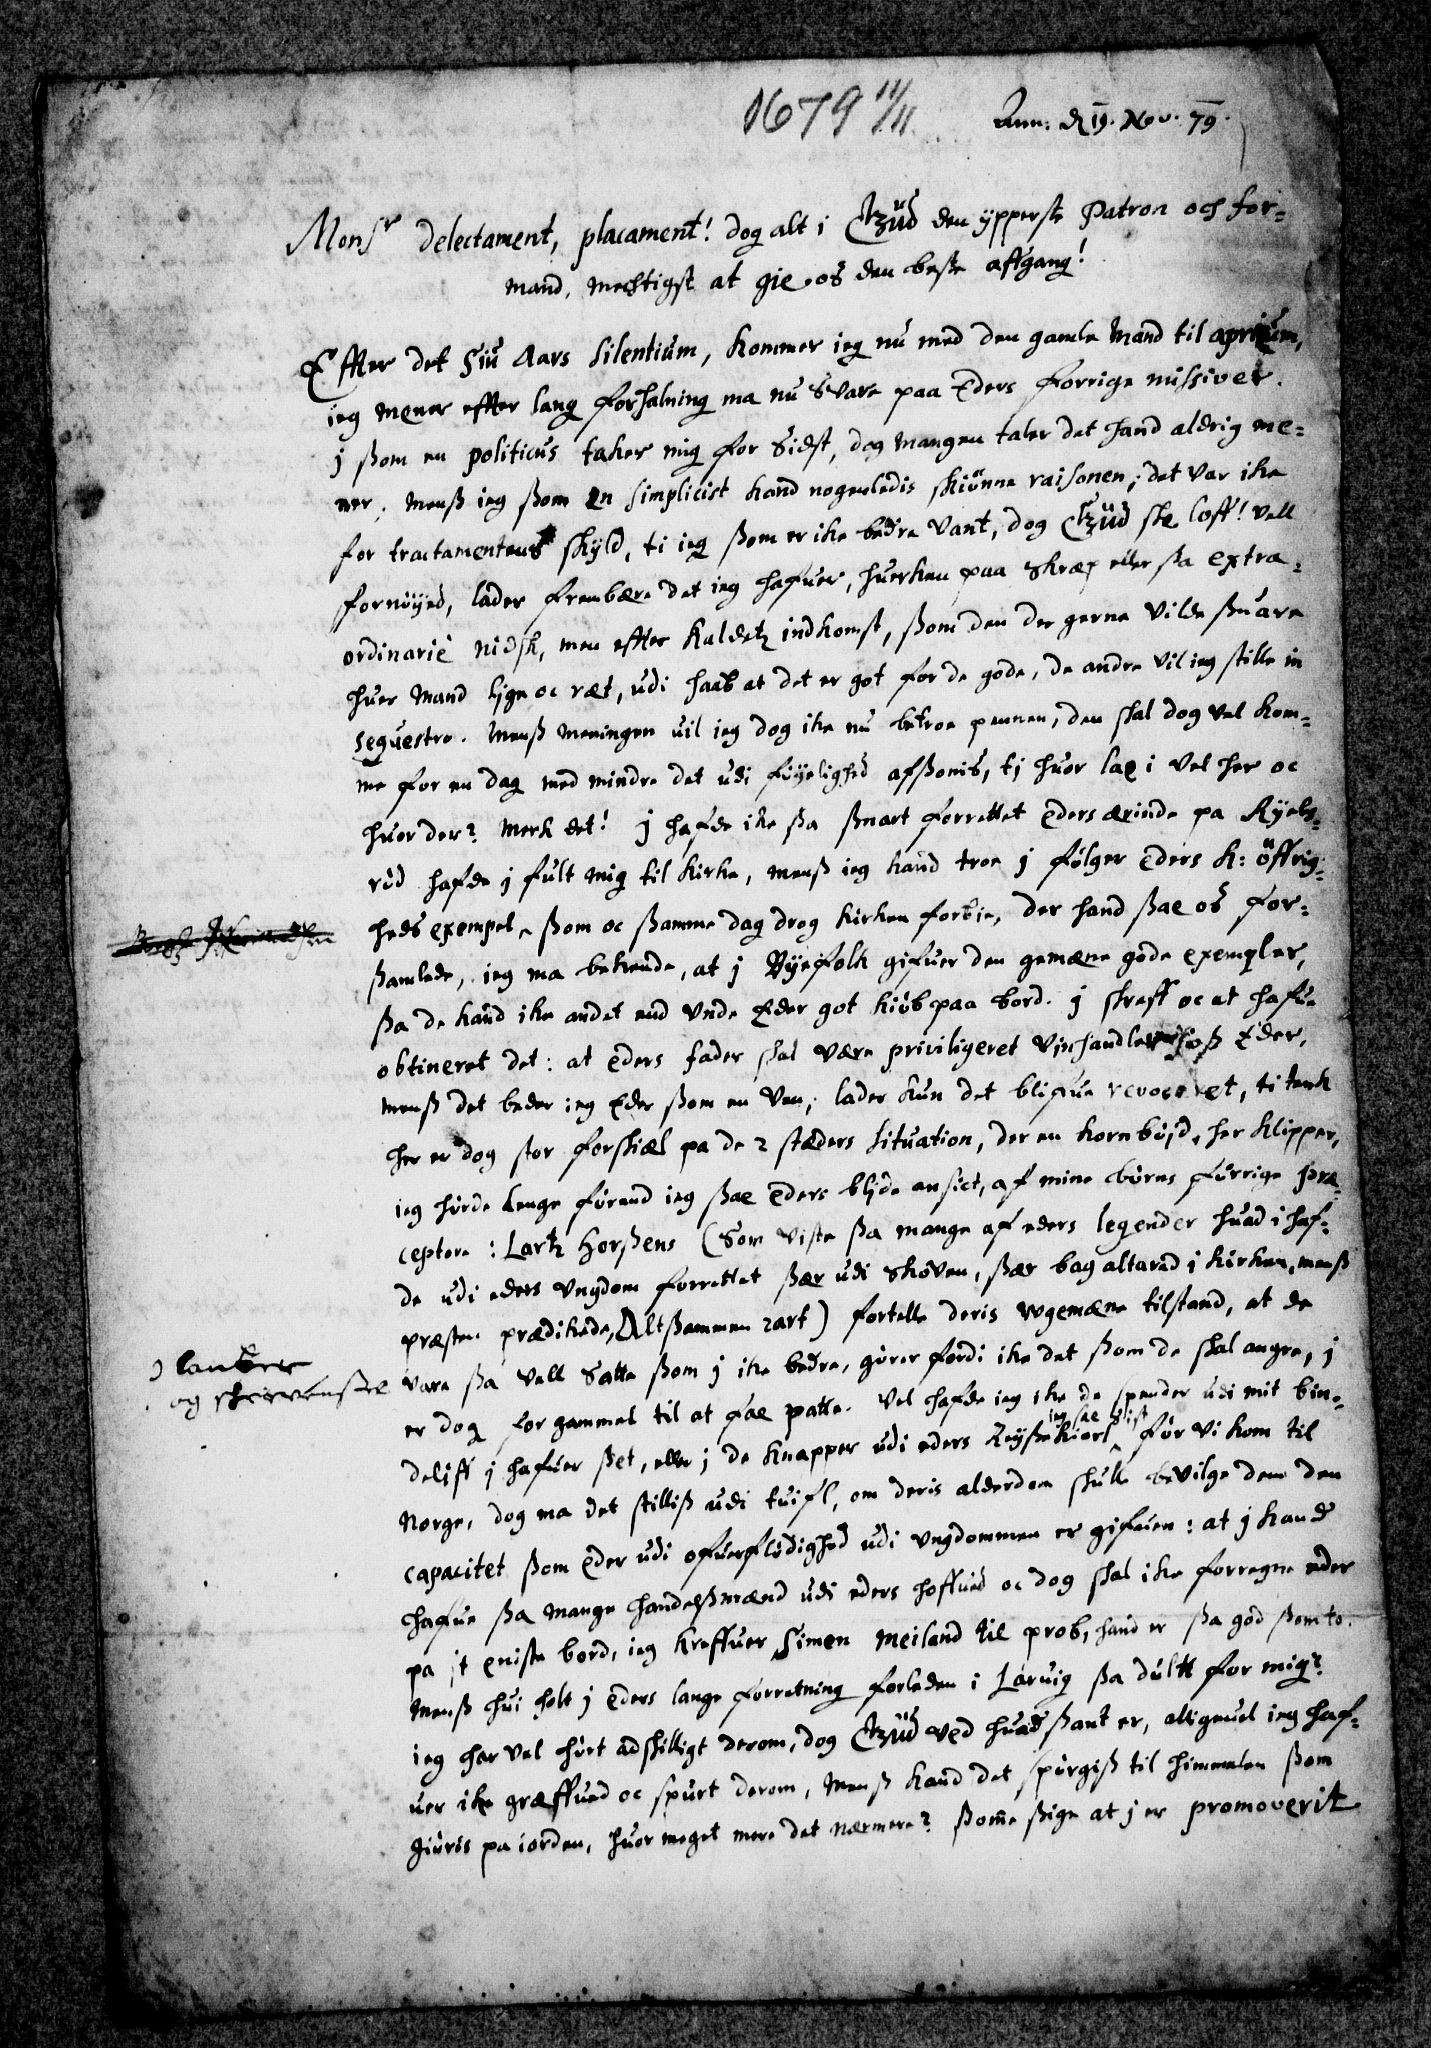 1679 11/11
Ann: d 19. Nov. 79.
Monsr delectament, placament! dog alt i Gud den ypperste Patron och for-
mand, mechtigst at gie os den beste affgang!
Effter det Siu Aars silentium, kommer ieg nu med den gamle Mand til
ieg mener effter lang forhalning ma nu Svare paa Eders forrige missiver.
j ßom en politicus taker mig for Sidst, dog mangen taler det hand aldrig me-
ner, menß ieg ßom en simplicist kand nogenledis skiönne raisonen; det var ike
for tractamentens skyld, ti ieg ßom er ike bedre vant, dog Gud ske loff! vell
fornöyed, lader frembære det ieg hafuer, huerken paa skrap eller ßa extra-
ordinarie nidsk, men effter kaldetz indkomst, ßom den der gerne vilde ßuare
huer mand lige oc ræt, udi haab at det er got for de gode, de andre vil ieg stille in
sequestro. Menß meningen uil ieg dog ike nu betroe pennen, den skal dog vel kom-
me for en dag med mindre det udi föyelighed afßonis, tj huor lae i vel her oc
huor der? merk det! j hafde ike ßa ßnart forrettet Eders ærinde pa Ryels-
rud hafde j fult mig til kirke, menß ieg kand troe j fölger Eders k: öffrig-
heds exempel, ßom oc ßamme dag drog kirken forbie, der hand ßae os for-
ßamlede, ieg ma bekende, at j Byefolk gifuer den gemæne gode exempler,
ßa de kand ike andet end unde Eder got kiöb paa bord. j skreff oc at hafue
obtineret det: at Eders fader skal være priviligeret Vinhandler hoß Eder,
menß det beder ieg Eder ßom en Ven, lader kun det blifue revoceret, ti tenk
her er dog stor forskiæl pa de 2 stæders situation, der en korn böjd, her klipper,
ieg hörde lenge förend ieg ßae Eders blide ansict, af mine börns förrige præ-
ceptore: Lartz Horßens (Som viste ßa mange af eders legender huad i haf-
de udi eders ungdom forrettet ßær udi Skoven, ßær bag altered i kirken, menß
præsten prædikede, Altßammen rart) fortelle deris ugemæne tilstand, at de
vare ßa vell Satte ßom j ike bedre, görer fordi ike det ßom de skal angre, j
er dog for gammel til at fae patte. Vel hafde ieg ike de spender udi mit bin-
deliff j hafuer ßet, eller j de knapper udi eders Reyßekiort ieg sae sist för vi kom til
Norge, dog ma det stilliß udi tuifl, om deris alderdom skulle bevilge dem den
capacitet ßom Eder udi ofuerflödighed udi ungdommen er gifuen: at j kand
hafue ßa mange handelßmænd udi eders hoffued oc dog skal ike forregne eder
pa it eniste bord, ieg kreffuer Simen Meiland til prob, hand er ßa god ßom to.
Menß hui holt j Eders lange forretning forleden i Laruig ßa dultt for mig?
ieg har vel hört adskilligt derom, dog Gud ved huad ßant er, alligeuel ieg haf-
uer ike græffued oc spurt derom, Menß kand det spörgiß til himmelen ßom
giöris pa iorden, huor meget mere det nærmere? ßom̃e ßige at j er promoverit